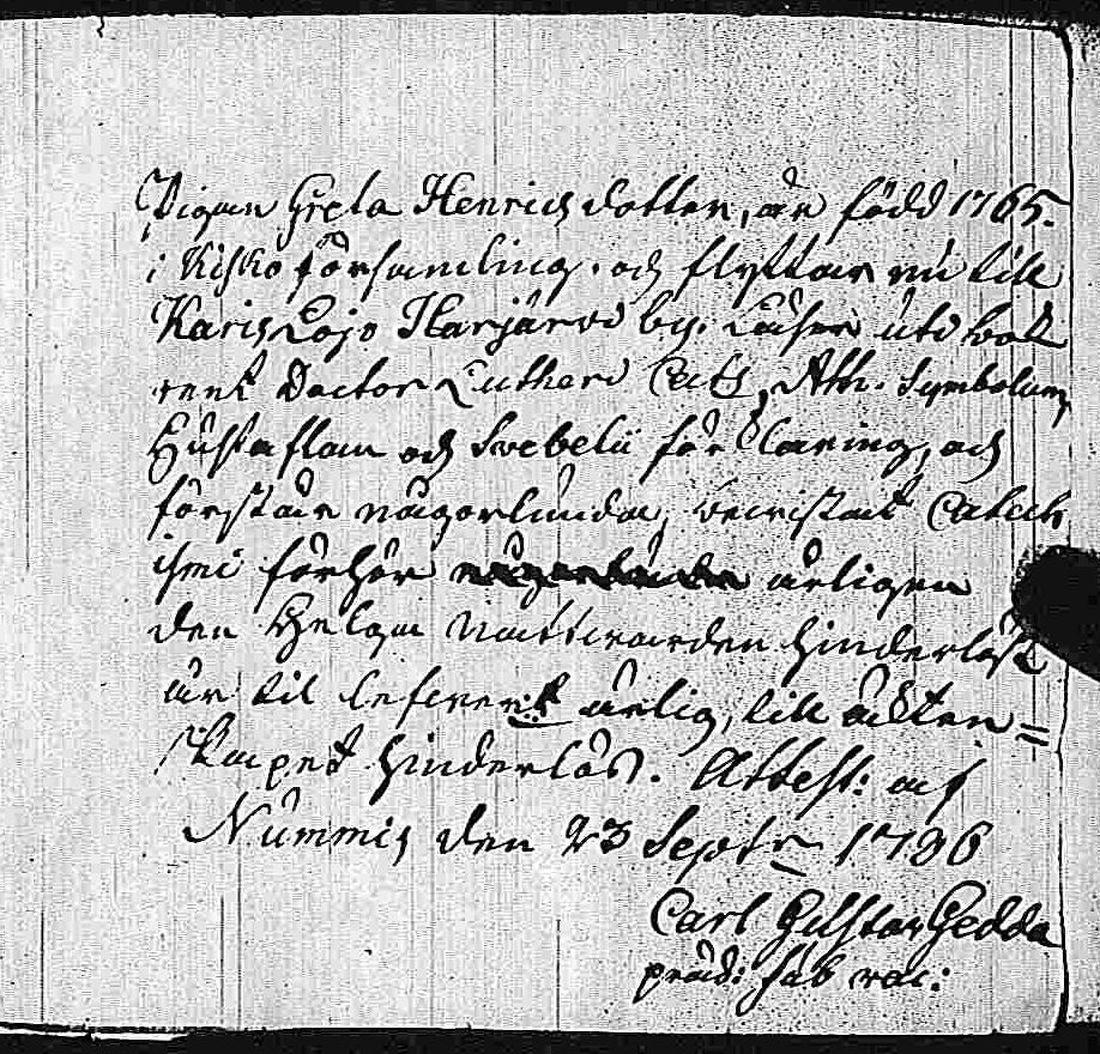 Pigan Greta Henrichsdotter, är född 1765.
i Kisko församling. och flyttar nu till
Karis Lojo Harjärvi by. Läser utan bok
rent Doctor Lutheri Cats, Ath. Symbolum,
Hustaflan och Svebelii förklaring, och
förstår någorlunda, bevistat Catech
ismi förhör årligen
den Helga Nattvarden hinderlöst
är til lefvernet ärlig, till ächten=
skapet hinderlös. Attest: af
Nummis den 23 Septr 1786
Carl Gustav Gedda
præd: sac